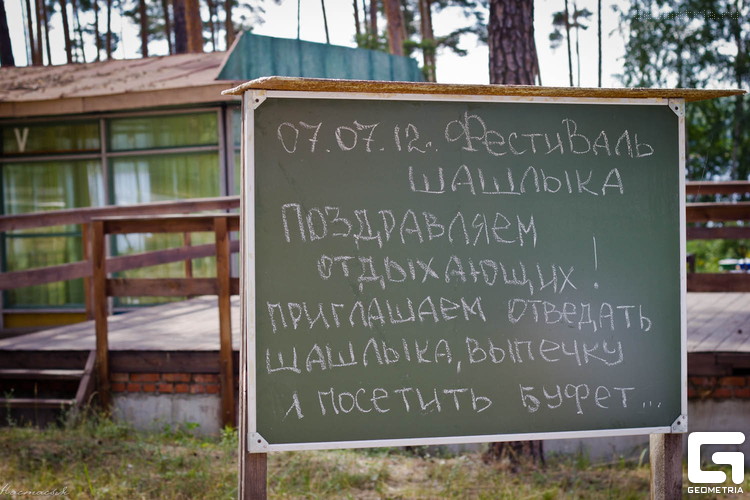 07.07.12. Фестиваль
шашлыка
Поздравляем
отдыхающих!
приглашаем отведать
шашлыка, выпечку
и посетить буфет...
V
G
GEOMETRIA